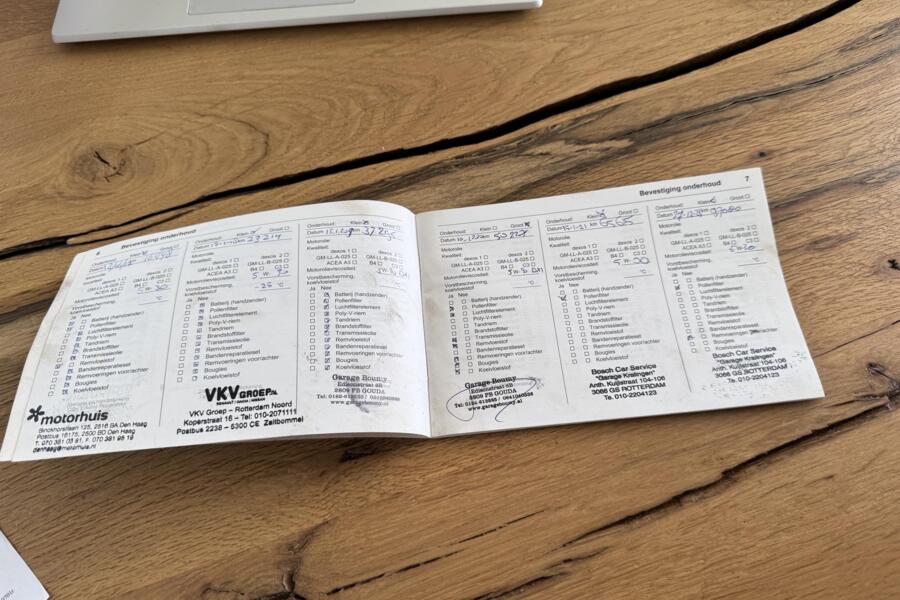 6
Bevestiging onderhoud
Onderhoud: Klein Groot
Datum km
Motorolie
Kwaliteit: dexos 1 dexos 2
GM-LL-A-025 GM-LL-B-025
ACEA A3 B4 C3
Motorolieviscositeit 5W30
Vorstbescherming, koelvloeistof °C
Ja Nee
Batterij (handzender)
Pollenfilter
Luchtfilterelement
Poly-V-riem
Tandriem
Brandstoffilter
Transmissieolie
Remvloeistof
Bandenreparatieset
Remvoeringen voor/achter
Bougies
Koelvloeistof
motorhuis
Binckhorstlaan 125, 2516 BA Den Haag
Postbus 16175, 2500 BD Den Haag
T. 070 381 03 81, F. 070 381 95 19
denhaag@motorhuis.nl
Onderhoud: Klein Groot
Datum km 29214
Motorolie
Kwaliteit: dexos 1 dexos 2
GM-LL-A-025 GM-LL-B-025
ACEA A3 B4 C3
Motorolieviscositeit 5W30
Vorstbescherming, koelvloeistof -25 °C
Ja Nee
Batterij (handzender)
Pollenfilter
Luchtfilterelement
Poly-V-riem
Tandriem
Brandstoffilter
Transmissieolie
Remvloeistof
Bandenreparatieset
Remvoeringen voor/achter
Bougies
Koelvloeistof
VKV GROEP.NL
VKV Groep – Rotterdam Noord
Koperstraat 16 – Tel: 010-2071111
Postbus 2238 – 5300 CE Zaltbommel
Onderhoud: Klein Groot
Datum km
Motorolie
Kwaliteit: dexos 1 dexos 2
GM-LL-A-025 GM-LL-B-025
ACEA A3 B4 C3
Motorolieviscositeit
Vorstbescherming, koelvloeistof °C
Ja Nee
Batterij (handzender)
Pollenfilter
Luchtfilterelement
Poly-V-riem
Tandriem
Brandstoffilter
Transmissieolie
Remvloeistof
Bandenreparatieset
Remvoeringen voor/achter
Bougies
Koelvloeistof
Garage Bouny
2809 PB GOUDA
www.garagebouny.nl
Bevestiging onderhoud
7
Onderhoud: Klein Groot
Datum km
Motorolie
Kwaliteit: dexos 1 dexos 2
GM-LL-A-025 GM-LL-B-025
ACEA A3 B4 C3
Motorolieviscositeit
Vorstbescherming, koelvloeistof °C
Ja Nee
Batterij (handzender)
Pollenfilter
Luchtfilterelement
Poly-V-riem
Tandriem
Brandstoffilter
Transmissieolie
Remvloeistof
Bandenreparatieset
Remvoeringen voor/achter
Bougies
Koelvloeistof
Garage Bouny
2809 PB GOUDA
www.garagebouny.nl
Onderhoud: Klein Groot
Datum km
Motorolie
Kwaliteit: dexos 1 dexos 2
GM-LL-A-025 GM-LL-B-025
ACEA A3 B4 C3
Motorolieviscositeit
Vorstbescherming, koelvloeistof °C
Ja Nee
Batterij (handzender)
Pollenfilter
Luchtfilterelement
Poly-V-riem
Tandriem
Brandstoffilter
Transmissieolie
Remvloeistof
Bandenreparatieset
Remvoeringen voor/achter
Bougies
Koelvloeistof
Bosch Car Service
"Garage Kralingen"
Anth. Kuijlstraat 104-106
3066 GS ROTTERDAM
Te. 010-2204123
Onderhoud: Klein Groot
Datum km
Motorolie
Kwaliteit: dexos 1 dexos 2
GM-LL-A-025 GM-LL-B-025
ACEA A3 B4 C3
Motorolieviscositeit
Vorstbescherming, koelvloeistof °C
Ja Nee
Batterij (handzender)
Pollenfilter
Luchtfilterelement
Poly-V-riem
Tandriem
Brandstoffilter
Transmissieolie
Remvloeistof
Bandenreparatieset
Remvoeringen voor/achter
Bougies
Koelvloeistof
Bosch Car Service
"Garage Kralingen"
Anth. Kuijlstraat 104-106
3066 GS ROTTERDAM
Te. 010-2204123